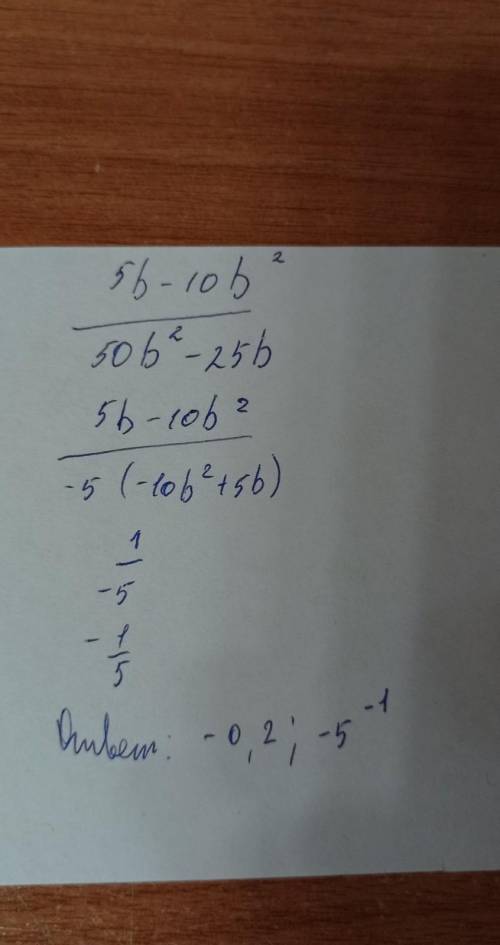 5b - 10b²
50b² - 25b
5b - 10b²
-5 (-10b² + 5b)
1
-5
- 1
5
Ответ: -0,2; -5⁻¹